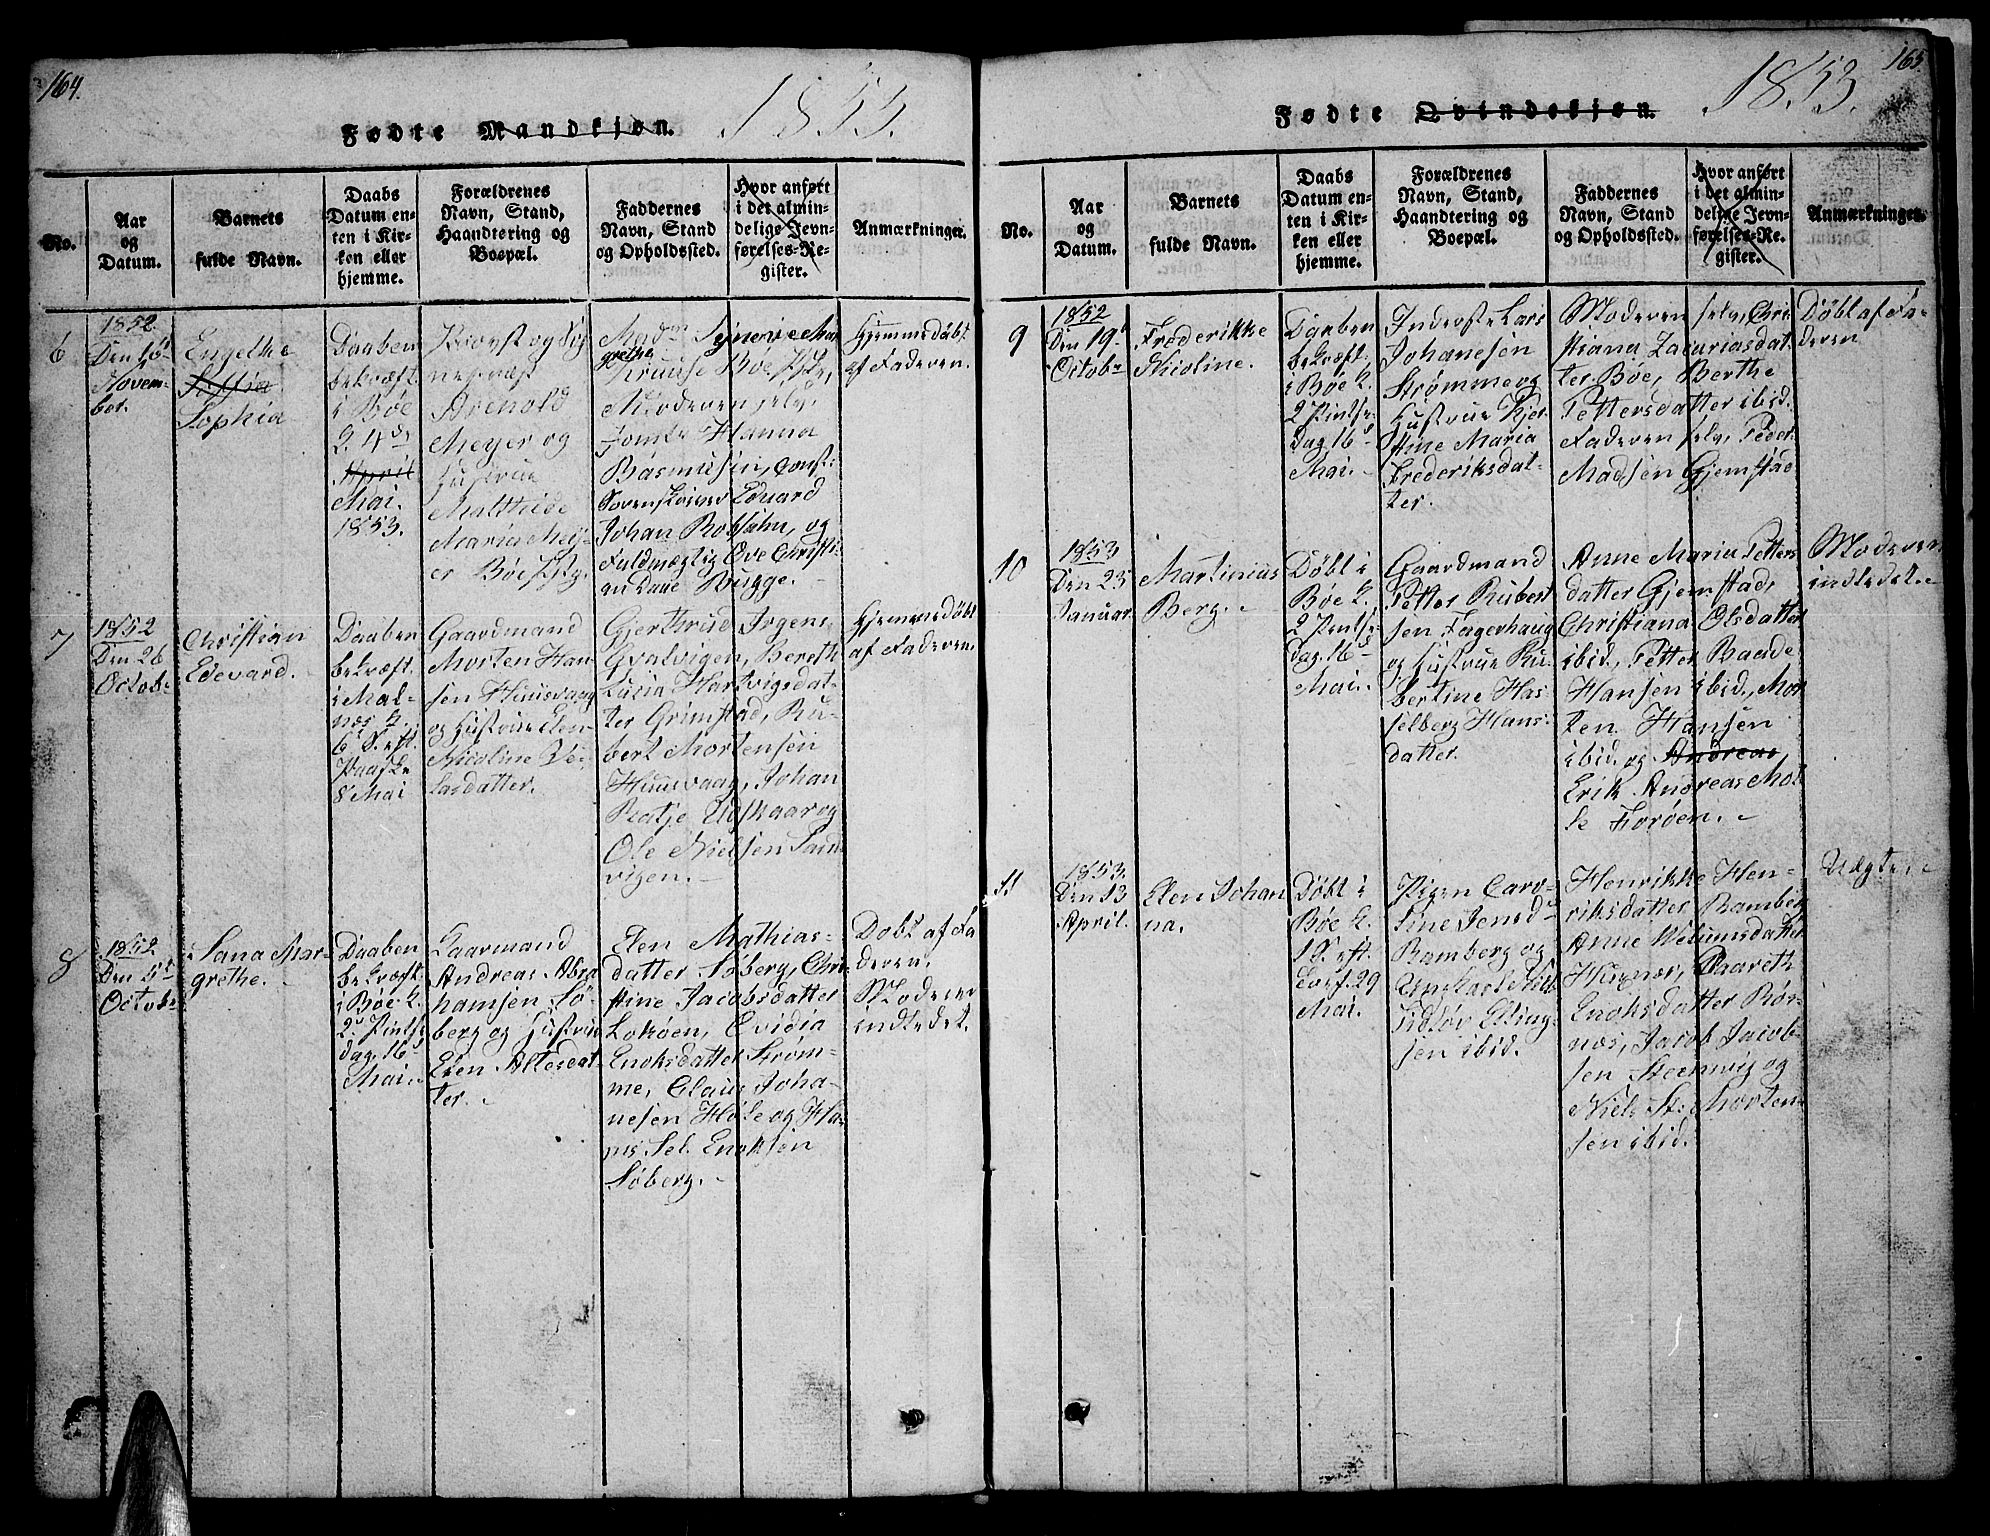 164.
Fødte Mandkjøn.
1853.
No.
Aar
og
Datum.
Barnets
fulde Navn.
Daabs
Datum en-
ten i Kir-
ken eller
hjemme.
Forældrenes
Navn, Stand,
Haandtering og
Boepæl.
Faddernes
Navn, Stand
og Opholdssted.
Hvor anført
i det almin-
delige Jevn-
førelses-Re-
gister.
Anmærkninger.
6
1852.
Novem-
ber.
Engelke
Sophia
Daaben
bekræft.
i Bøe
K. 4de
April
Mai.
1853.
Arnold
Meyer og
Hustrue
Mathilde
Maria Mey-
er Bøe
Kruuse Bøe
Moderen selv,
Jomfr Hanna
Rasmusen, Const:
Sorenskriver Eduard
Johan
og
Fuldmægtig Ove Christi-
an Daae Bugge.
Hjemmedøbt
af Faderen.
7
1852
Den 26
Octob:
Christian
Edevard.
Daaben
bekræft.
i Mal-
næs K.
6 S. eft.
Paaske
8 Mai
Gaardmand
Morten Han-
sen Huusvaag
og Hustrue Elen
Nicoline
lasdatter.
Gjerthrud Jrgens
Qvalvigen, Bereth
Lucia Hartvigsdat-
ter Grimstad, Ru-
bert Mortensen
Huusvaag, Johan
Udskaar og
Ole Nielsen Sand-
vigen.
Hjemmedøbt
af Faderen.
8
1852
Den 5te
October
Sana Mar-
grethe.
Daaben
bekræft.
i Bøe K.
2 Pintse-
dag 16d
Mai.
Gaarmand
Andreas Abra
hamsen Sö-
berg og Hustrue
Elen
ter.
Elen Mathias-
datter Söberg, Chri-
stine Jacobsdatter
Lokøen, Ovidia
Enoksdatter Strøm-
me, Claus Joha-
nesen Hole og Ha-
ns Sel. Enoksen
Söberg.
Døbt af Fa
deren.
Moderen
indledet.
165.
Fødte Qvindekjøn.
1853.
No.
Aar
og
Datum.
Barnets
fulde Navn.
Daabs
Datum en-
ten i Kir-
ken eller
hjemme.
Forældrenes
Navn, Stand,
Haandtering og
Boepæl.
Faddernes
Navn, Stand
og Opholdssted.
Hvor anført
i det almin-
delige Jevn-
førelses-Re-
gister.
Anmærkninger.
9
1852
Den 19d
Octobr
Frederikke
Nicoline.
Daaben
bekræft.
i Bøe K.
2 Pintse-
dag 16d
Mai.
Inderst Lars
Johanesen
Strømme og
Hustrue Kjer-
stine Maria
Frederiksdat-
ter.
Moderen selv, Chri
stiana Zacariasdat-
ter Bøe, Berthe
Pettersdatter ibid.
Faderen selv, Peder
Madsen Gjemstad
Døbt af Fa-
deren
10
1853
Den 25
Januar.
Martinius
Berg.
Døbt i
Bøe K.
2 Pintse-
dag 16d
Mai.
Gaardmand
Petter Rubert
sen Fagerhaug
og Hustrue Ru-
bertine Has-
selberg Hans-
datter.
Anne Maria Petters
datter Gjemstad,
Christiana Olsdatter
ibid, Petter Baade
Hansen ibid, Mor
ten Hansen
ibid. og Andreas
Erik Andreas Mol
Forøen.
Moderen
indledet.
11
1853.
Den 13
April.
Elen Johan
na.
Døbt i
Bøe K.
1 S. eft.
29
Mai.
Pigen Caro-
line Jensd
Ramberg og
Elling-
sen ibid.
Henrikke Hen-
riksdatter Ramberg
Anne
Enoksdatter Røn-
næs, Jacob Jacob-
sen Steenvig og
Niels St. Morten-
sen ibid.
Uægte.